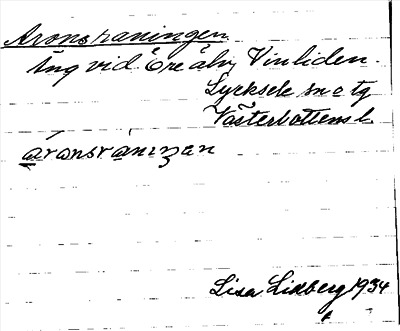 Aronsraningen
äng vid Öre älv, Vinliden.
Lycksele sn o tg
Västerbottens l.
aronsraningan
Lisa Lidberg 1934